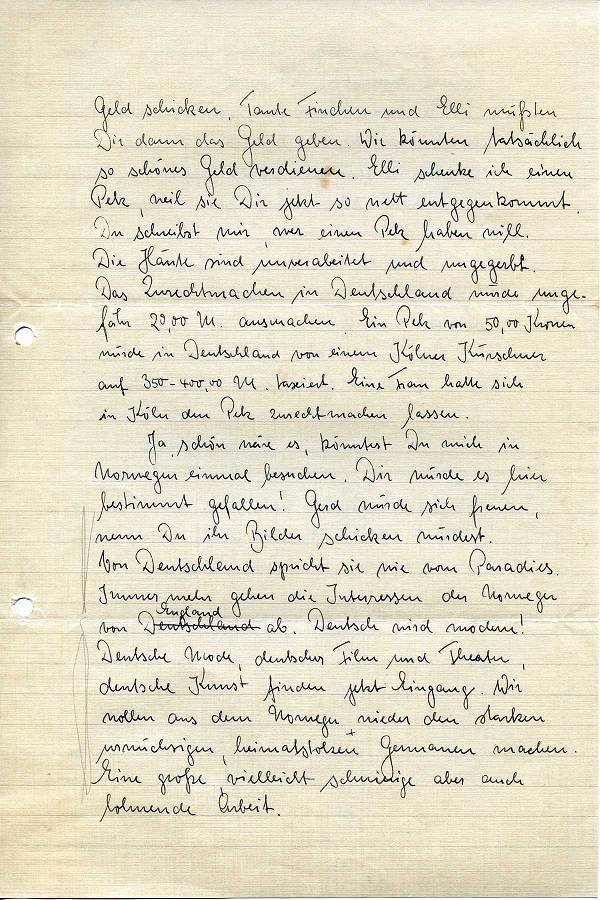 Geld schicken. Tante Finchen und Elli müßten
Dir dann das Geld geben. Wir könnten tatsächlich
so schönes Geld verdienen. Elli schenke ich einen
Pelz, weil sie Dir jetzt so nett entgegenkommt.
Du schreibst mir, wer einen Pelz haben will.
Die Häute sind unverabeitet und ungegerbt.
Das Zurechtmachen in Deutschland würde unge-
fähr 20,00 M. ausmachen. Ein Pelz von 50,00 Kronen
würde in Deutschland von einem Kölner Kürschner
auf 350-400,00 M. taxiert. Eine Frau hatte sich
in Köln den Pelz zurechtmachen lassen.
Ja, schön wäre es, könntest Du mich in
Norwegen einmal besuchen. Dir würde es hier
bestimmt gefallen! Gerd würde sich freuen,
wenn Du ihr Bilder schicken würdest.
Von Deutschland spricht sie wie vom Paradies.
Immer mehr gehen die Interessen der Norweger
von Deutschland England ab. Deutsch wird modern!
Deutsche Mode, deutscher Film und Theater,
deutsche Kunst finden jetzt Eingang. Wir
wollen aus dem Norweger wieder den starken
urwüchsigen, heimatstolzen + Germanen machen.
Eine große, vielleicht schwierige aber auch
lohnende Arbeit.